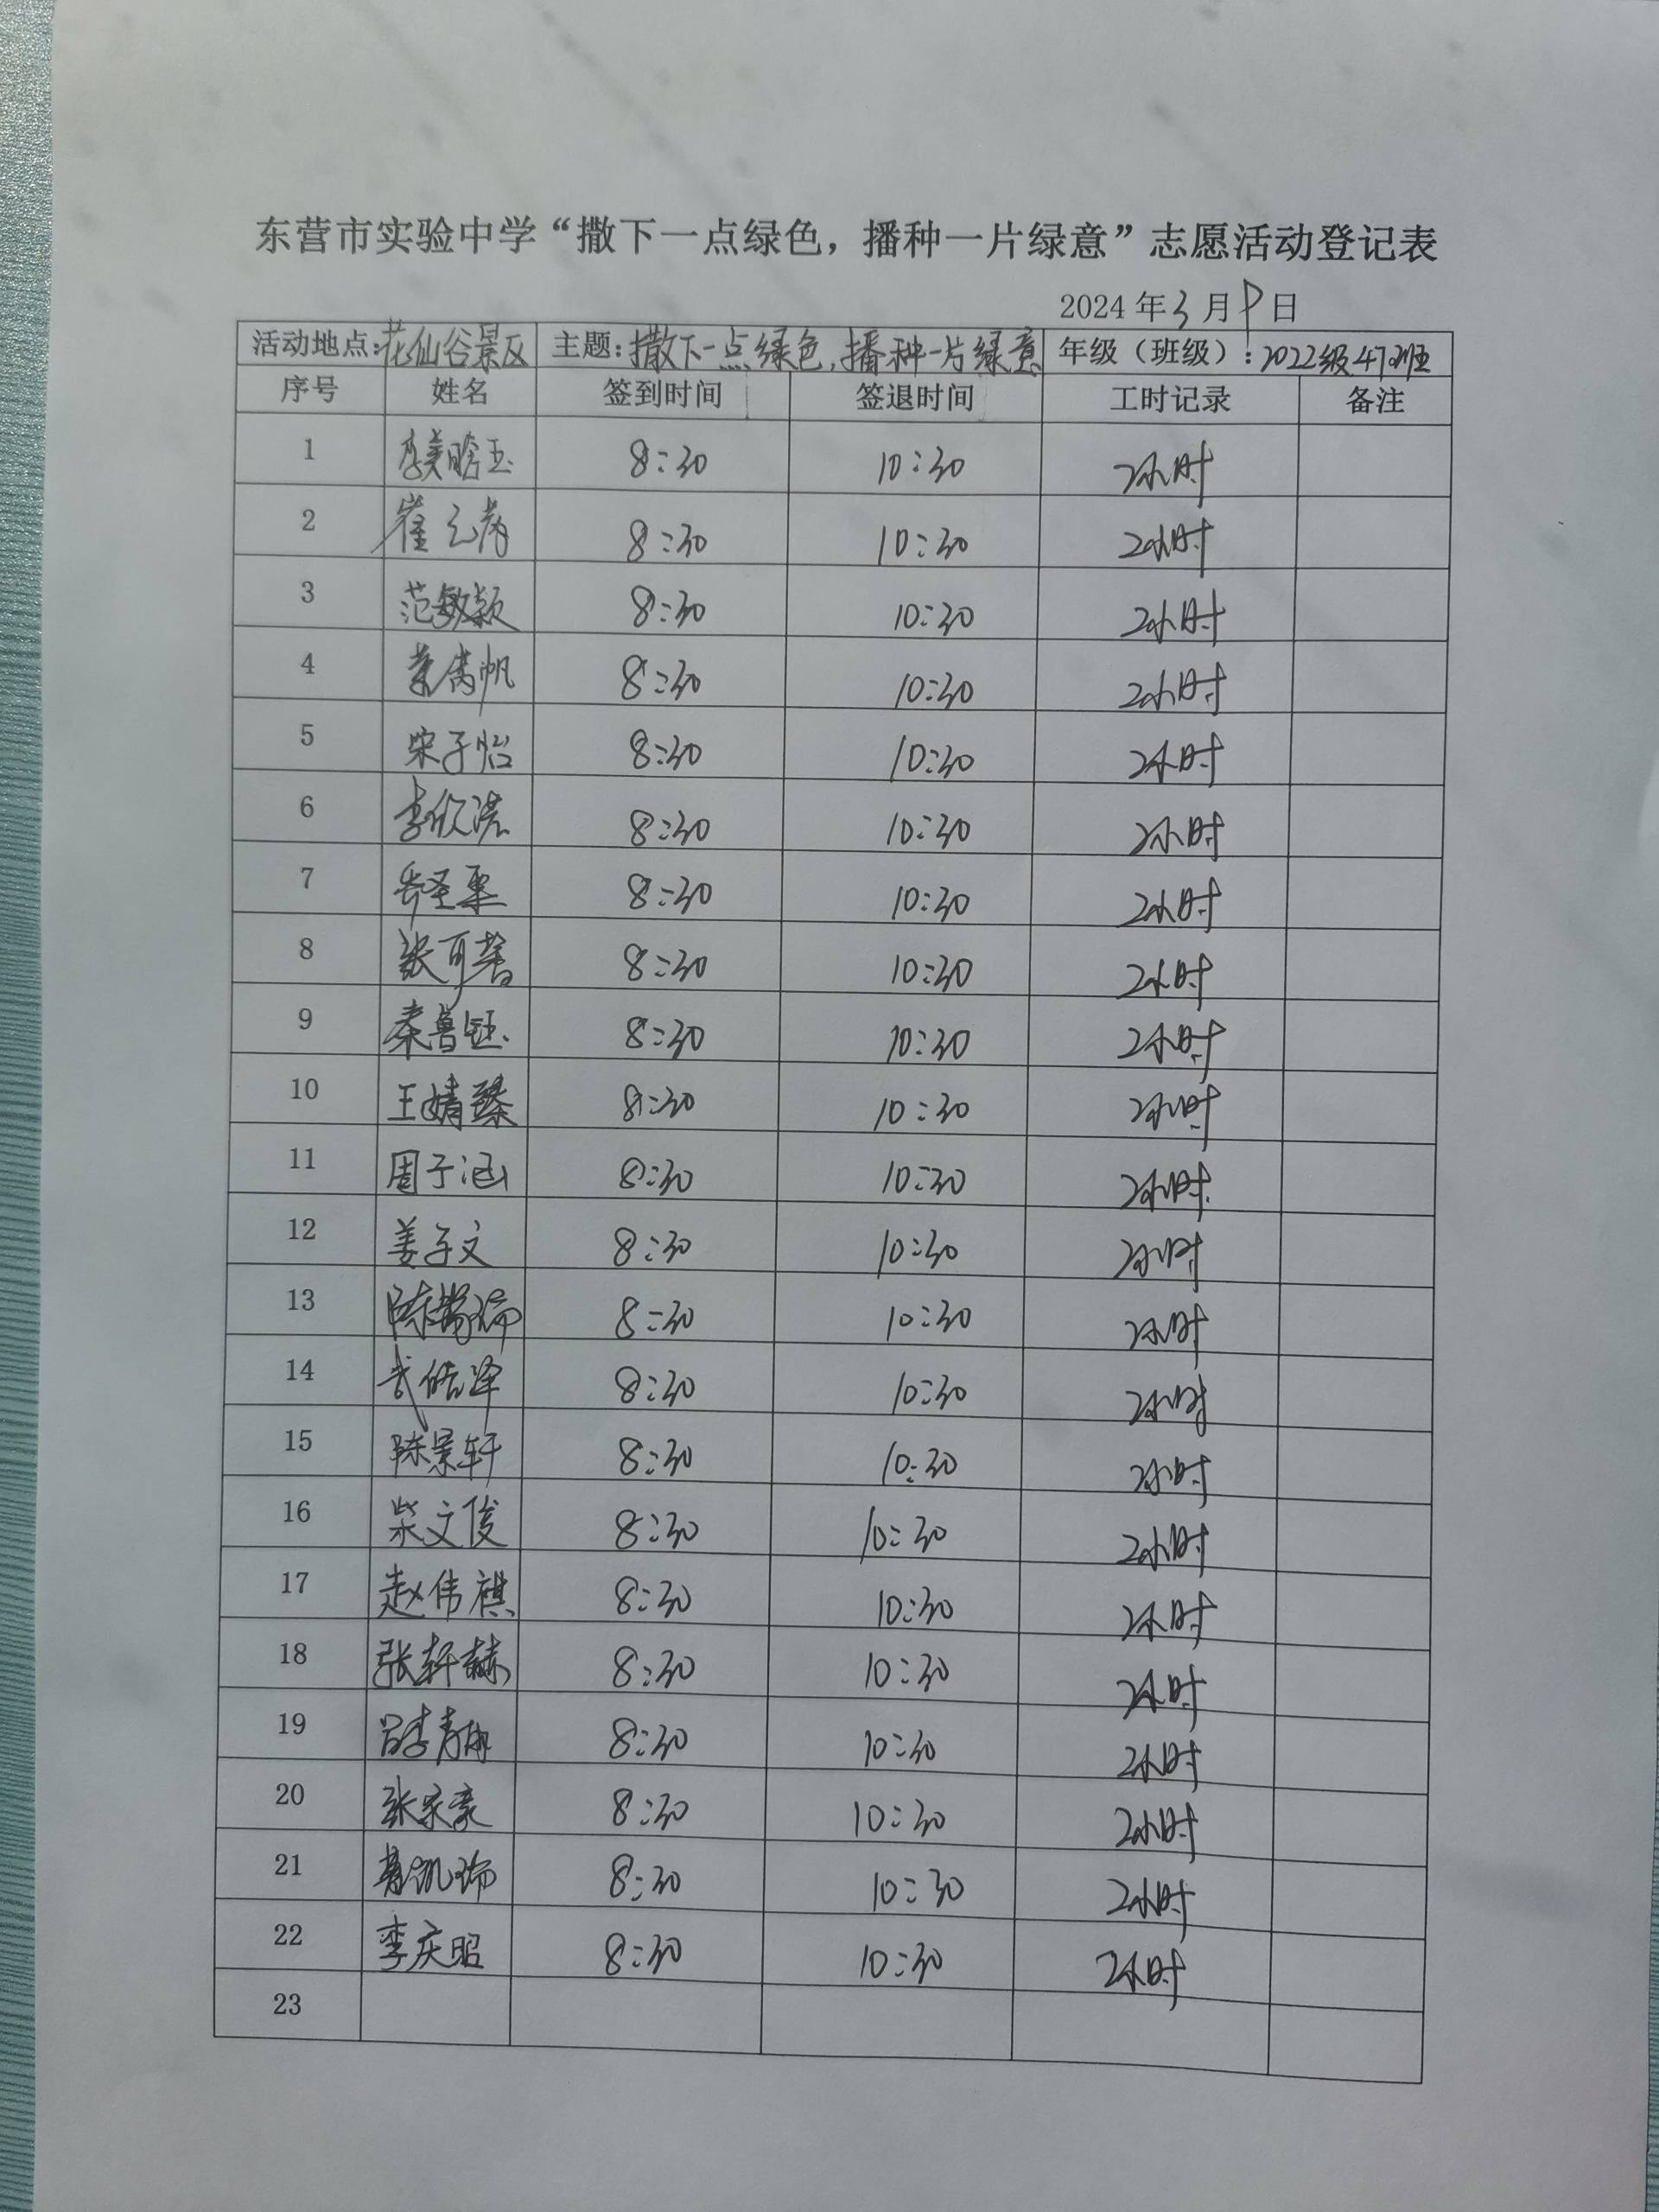 东营市实验中学“撒下一点绿色，播种一片绿意”志愿活动登记表
2024 年 3 月 9 日
活动地点：花仙谷景区 主题：撒下一点绿色，播种一片绿意 年级（班级）：2022级47班
序号 姓名 签到时间 签退时间 工时记录 备注
1 李美晗玉 8:30 10:30 2小时
2 崔元 8:30 10:30 2小时
3 范敏颖 8:30 10:30 2小时
4 帆 8:30 10:30 2小时
5 宋子怡 8:30 10:30 2小时
6 李欣 8:30 10:30 2小时
7 8:30 10:30 2小时
8 张可馨 8:30 10:30 2小时
9 秦鲁钰 8:30 10:30 2小时
10 王婧臻 8:30 10:30 2小时
11 周子涵 8:30 10:30 2小时
12 姜子文 8:30 10:30 2小时
13 陈瑞 8:30 10:30 2小时
14 武皓泽 8:30 10:30 2小时
15 陈景轩 8:30 10:30 2小时
16 柴文俊 8:30 10:30 2小时
17 赵伟祺 8:30 10:30 2小时
18 张轩赫 8:30 10:30 2小时
19 吕李青 8:30 10:30 2小时
20 张家豪 8:30 10:30 2小时
21 凯瑞 8:30 10:30 2小时
22 李庆昭 8:30 10:30 2小时
23